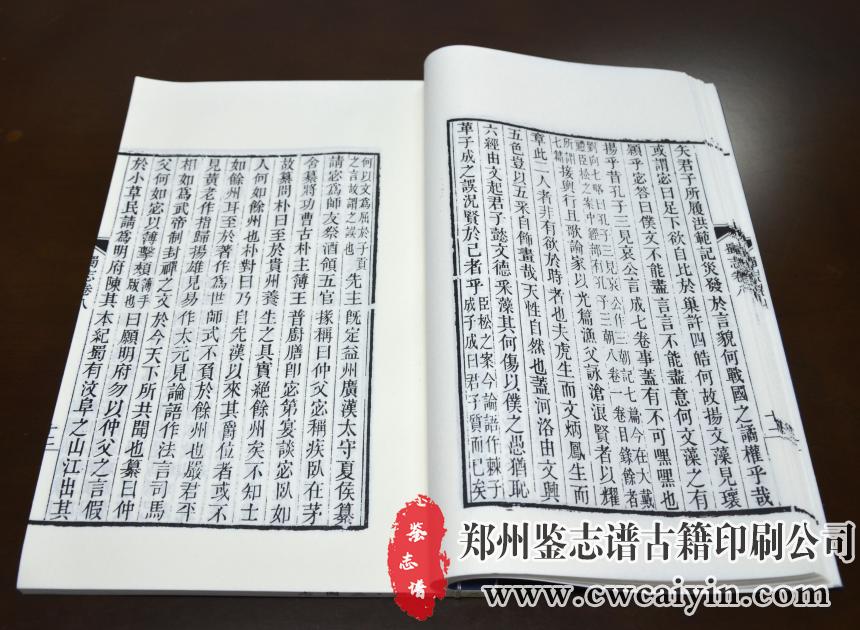 矢君子所履洪範記災發於言貌何戰國之譎權乎哉
或謂宓曰足下欲自比於巢許四皓何故揚文藻見瓌
穎乎宓答曰僕文不能盡言言不能盡意何文藻之有
揚乎昔孔子三見哀公言成七卷事蓋有不可嘿嘿也
劉向七略曰孔子三見哀公作三朝記七篇今在大戴
禮臣松之案中經部有孔子三朝八卷一卷目錄餘者
所謂七篇接輿行且歌論家以光篇漁父詠滄浪賢者以耀
章此二人者非有欲於時者也夫虎生而文炳鳳生而
五色豈以五采自飾畫哉天性自然也蓋河洛由文興
六經由文起君子懿文德采藻其何傷以僕之愚猶恥
革子成之誤況賢於己者乎臣松之案今論語作棘子成子成曰君子質而已矣
何以文為屈於子貢之言故謂之誤也先主既定益州廣漢太守夏侯纂
請宓為師友祭酒領五官掾稱曰仲父宓稱疾臥在茅
舍纂將功曹古朴主簿王普廚膳即宓第宴談宓臥如
故纂問朴曰至於貴州養生之具實絕餘州矣不知士
人何如餘州也朴對曰乃自先漢以來其爵位者或不
如餘州耳至於著作為世師式不負於餘州也嚴君平
見黃老作指歸揚雄見易作太元見論語作法言司馬
相如為武帝制封禪之文於今天下所共聞也纂曰仲
父何如宓以薄擊頰薄手版也曰願明府勿以仲父之言假
於小草民請為明府陳其本紀蜀有汶阜之山江出其
蜀志卷八
鉴志谱
郑州鉴志谱古籍印刷公司
www.cwcaiyin.com